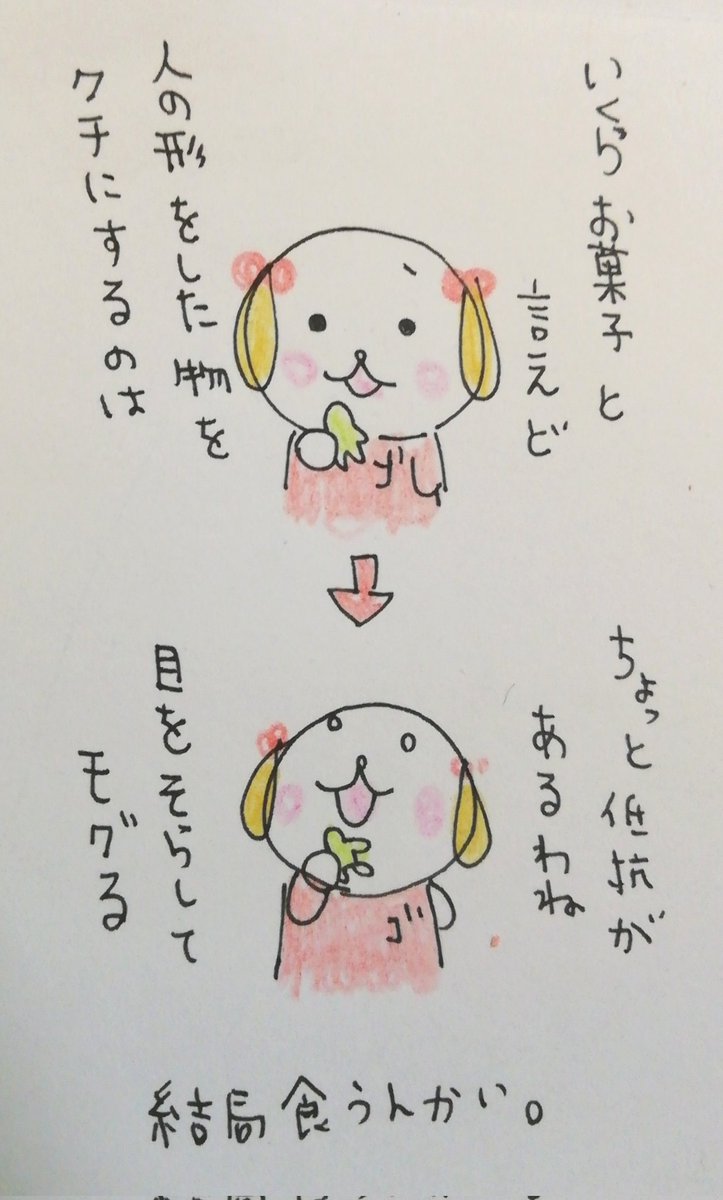 いくらお菓子と
言えど
人の形をした物を
クチにするのは
ゴム
ちょっと低抗が
あるわね
目をそらして
モグる
ゴ
結局食うんかい。